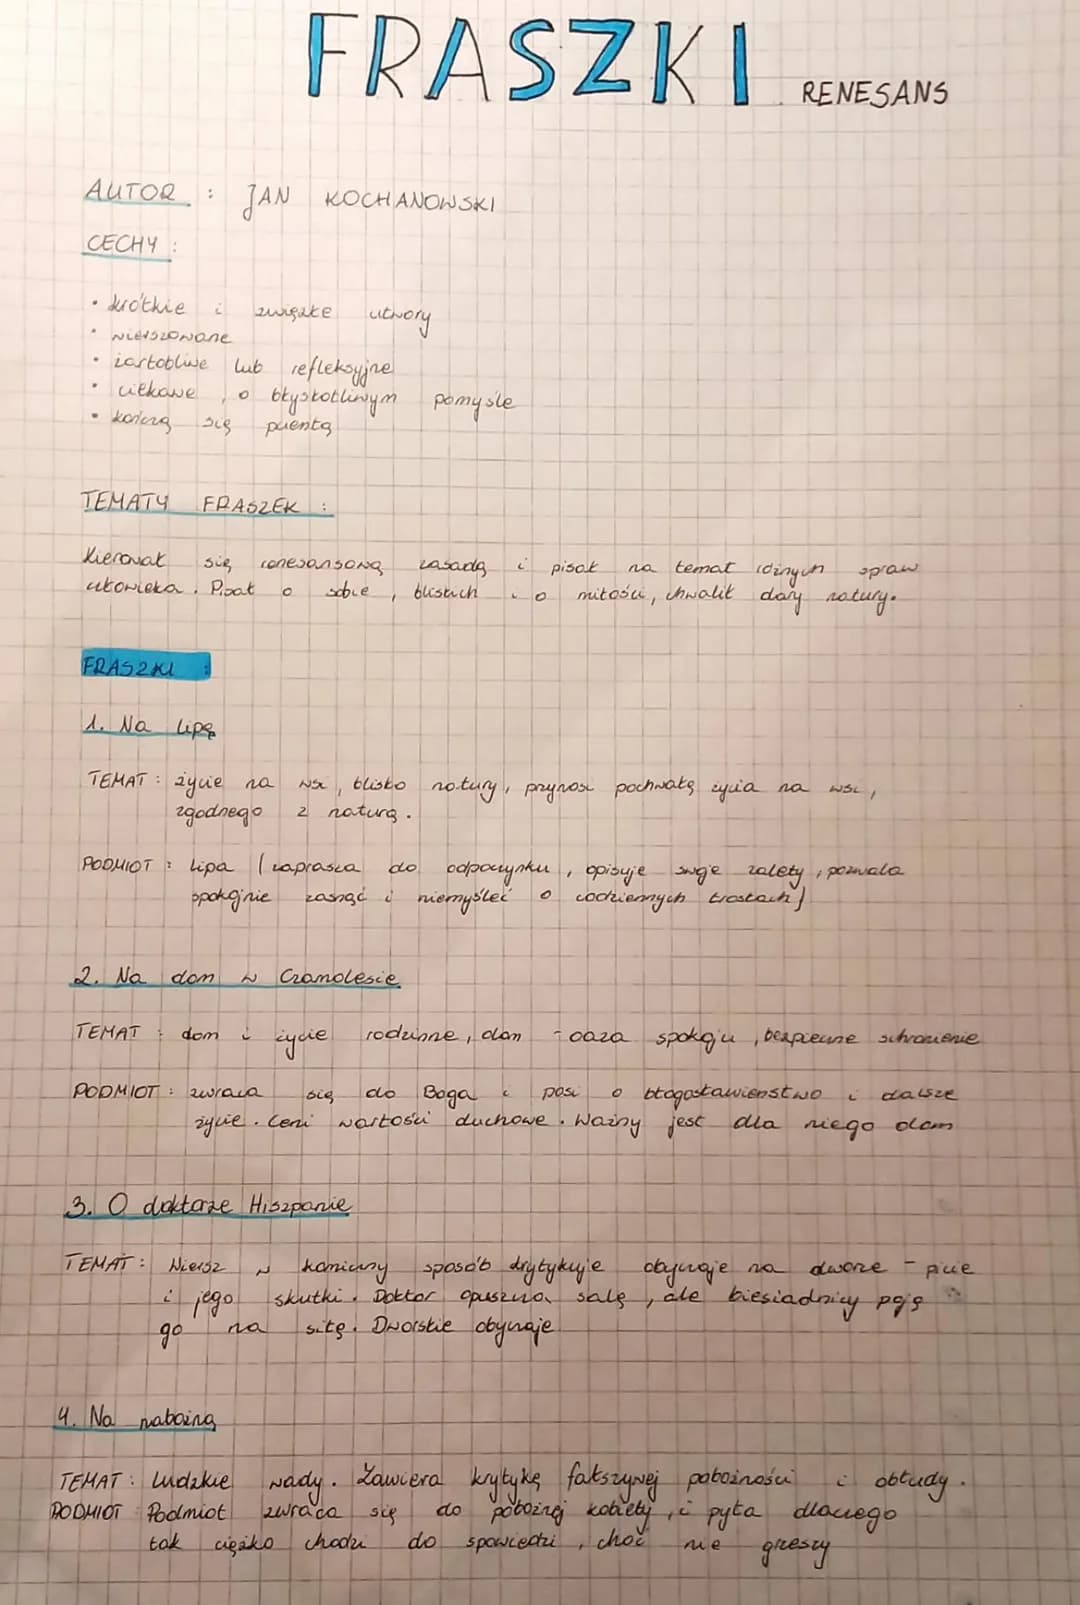 FRASZKI RENESANS
AUTOR : JAN KOCHANOWSKI
CECHY :
• krótkie i zwięzłe utwory
• wierszowane
• żartobliwe lub refleksyjne
• ciekawe , o błyskotliwym pomyśle
• kończą się puentą
TEMATY FRASZEK :
Kierował się renesansową zasadą i pisał na temat różnych spraw
człowieka. Pisał o sobie, bliskich i o miłości, chwalił dary natury.
FRASZKI :
1. Na lipę
TEMAT : życie na wsi, blisko natury, przynosi pochwałę życia na wsi,
zgodnego z naturą.
PODMIOT : lipa (zaprasza do odpoczynku, opisuje swoje zalety, pozwala
spokojnie zasnąć i niemyśleć o codziennych troskach)
2. Na dom w Czarnolesie
TEMAT : dom i życie rodzinne, dom - oaza spokoju, bezpieczne schronienie
PODMIOT : zwraca się do Boga i posi o błogosławieństwo i dalsze
życie. Ceni wartości duchowe. Ważny jest dla niego dom
3. O doktorze Hiszpanie
TEMAT : Wiersz w komiczny sposób krytykuje obyczaje na dworze - picie
i jego skutki. Doktor opuszcza salę, ale biesiadnicy poją
go na siłę. Dworskie obyczaje
4. Na nabożną
TEMAT : Ludzkie wady. Zawiera krytykę fałszywej pobożności i obłudy.
PODMIOT Podmiot zwraca się do pobożnej kobiety, i pyta dlaczego
tak ciężko chodzi do spowiedzi, choć nie grzeszy